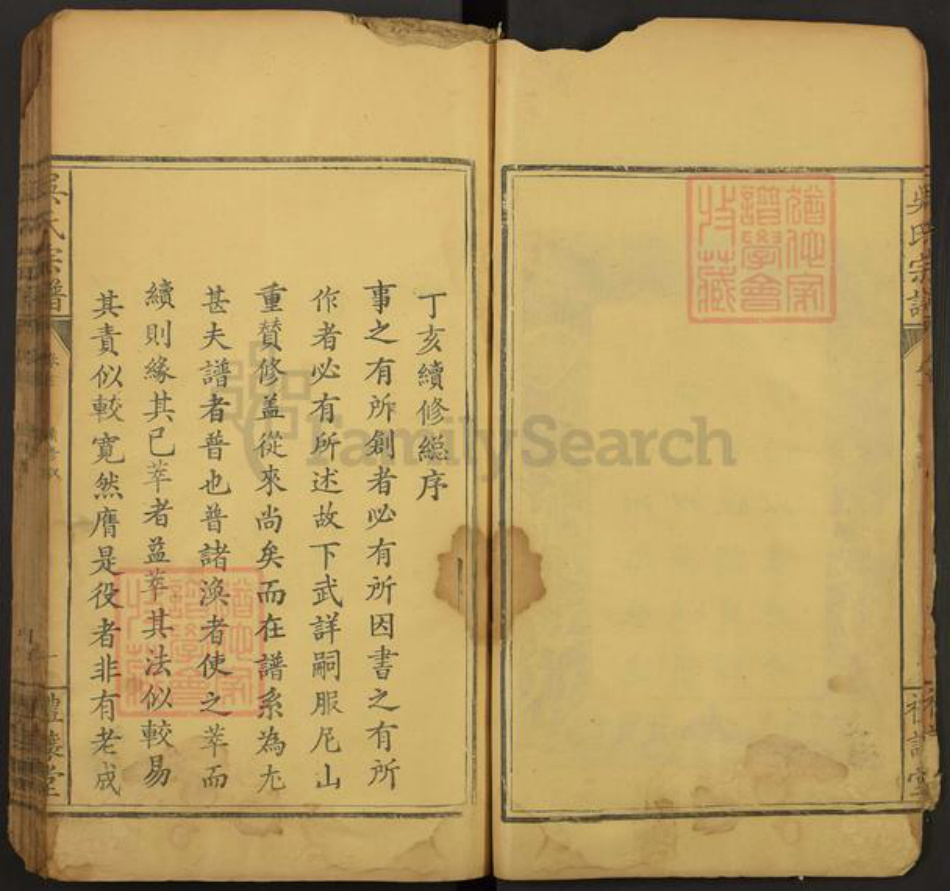 丁亥續修縂序
事之有所創者必有所因書之有所
作者必有所述故下武詳嗣服尼山
重贊修盖從來尚矣而在譜系為尤
甚夫譜者普也普諸渙者使之萃而
續則緣其已萃者益萃其法似較易
其責似較寬然膺是役者非有老成
吳氏宗譜
吳氏宗譜
FamilySearch